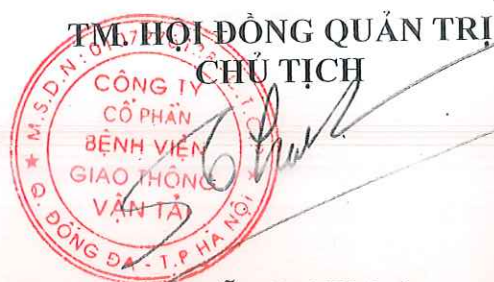 TM. HỘI ĐỒNG QUẢN TRỊ
CHỦ TỊCH
CÔNG TY
CỔ PHẦN
BỆNH VIỆN
GIAO THÔNG
VẬN TẢI
★ M.S.D.N:
★ Q. ĐỐNG ĐA - T.P HÀ NỘI